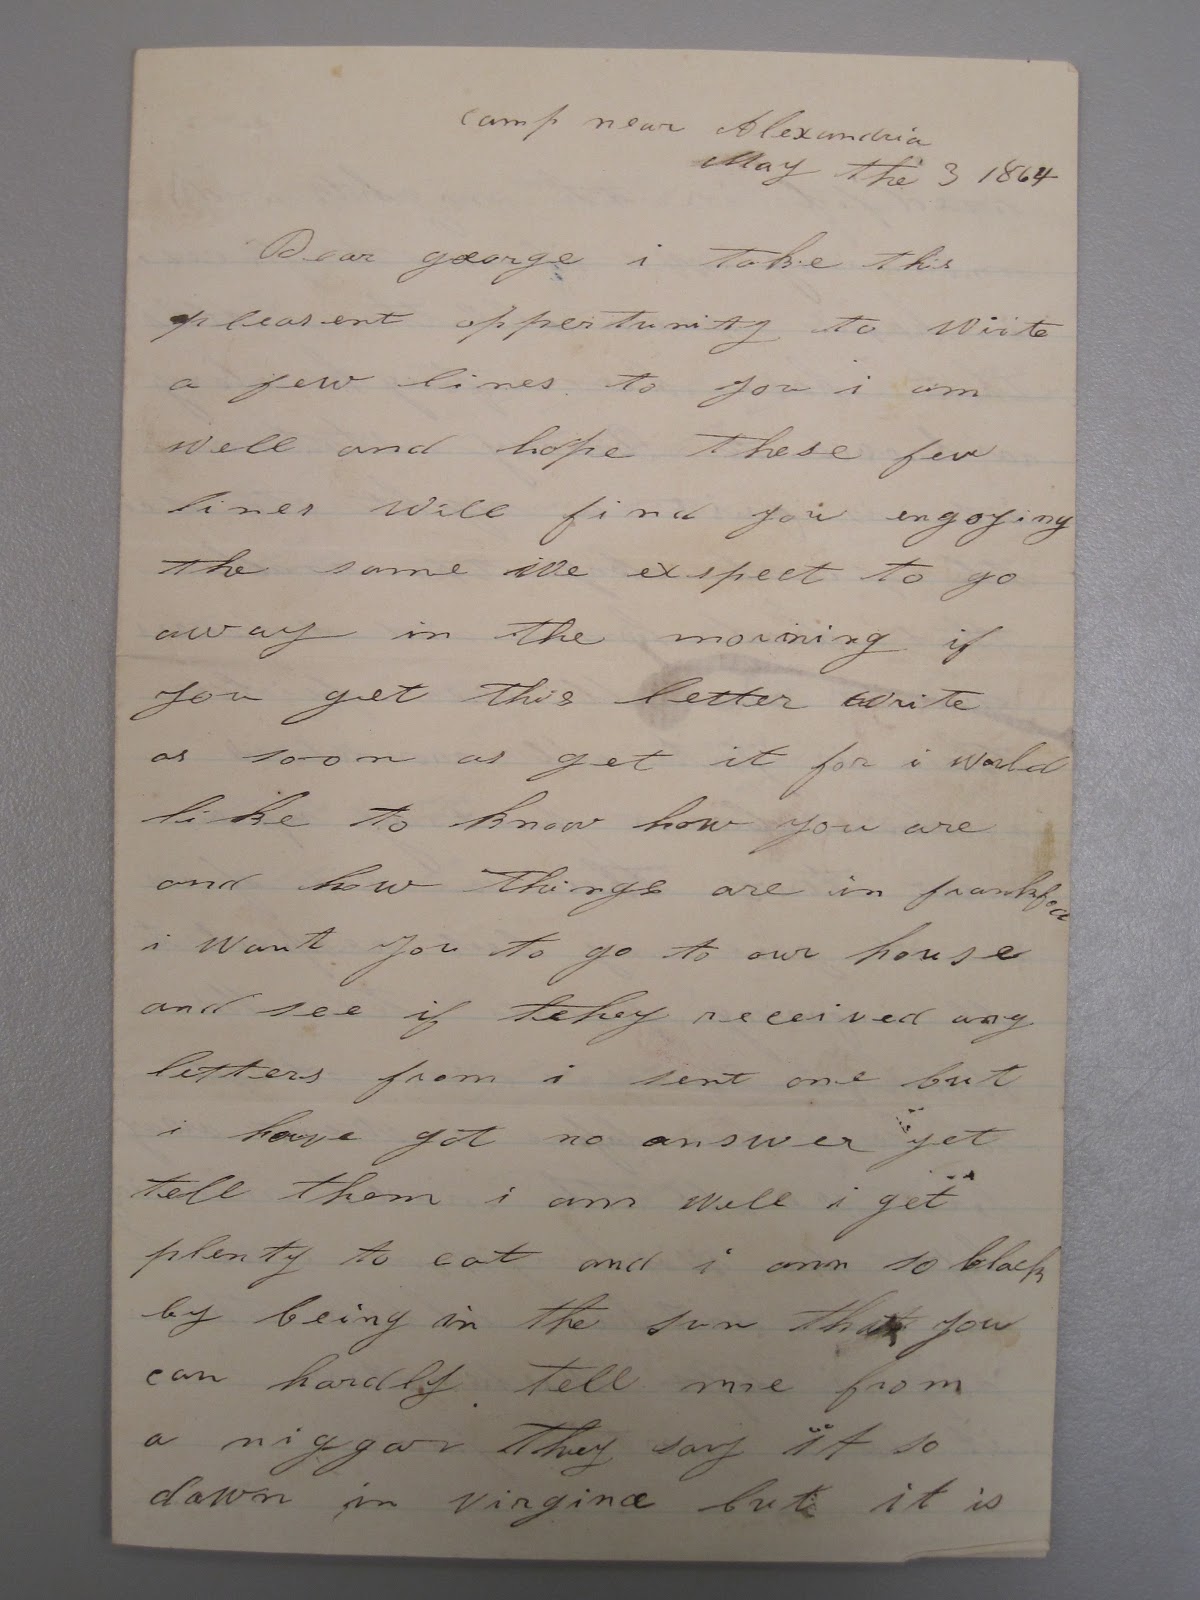 camp near Alexandria
May the 3 1864
Dear george i take this
pleasent oppertunity to write
a few lines to you i am
well and hope these few
lines will find you engoying
the same We exspect to go
away in the morining if
you get this letter write
as soon as get it for i world
like to know how you are
and how things are in frankford
i want you to go to our house
and see if tehey received any
letters from i sent one but
i have got no answer yet
tell them i am well i get
plenty to eat and i am so black
by being in the sun that you
can hardly tell me from
a niggar they say it so
down in virgina but it is